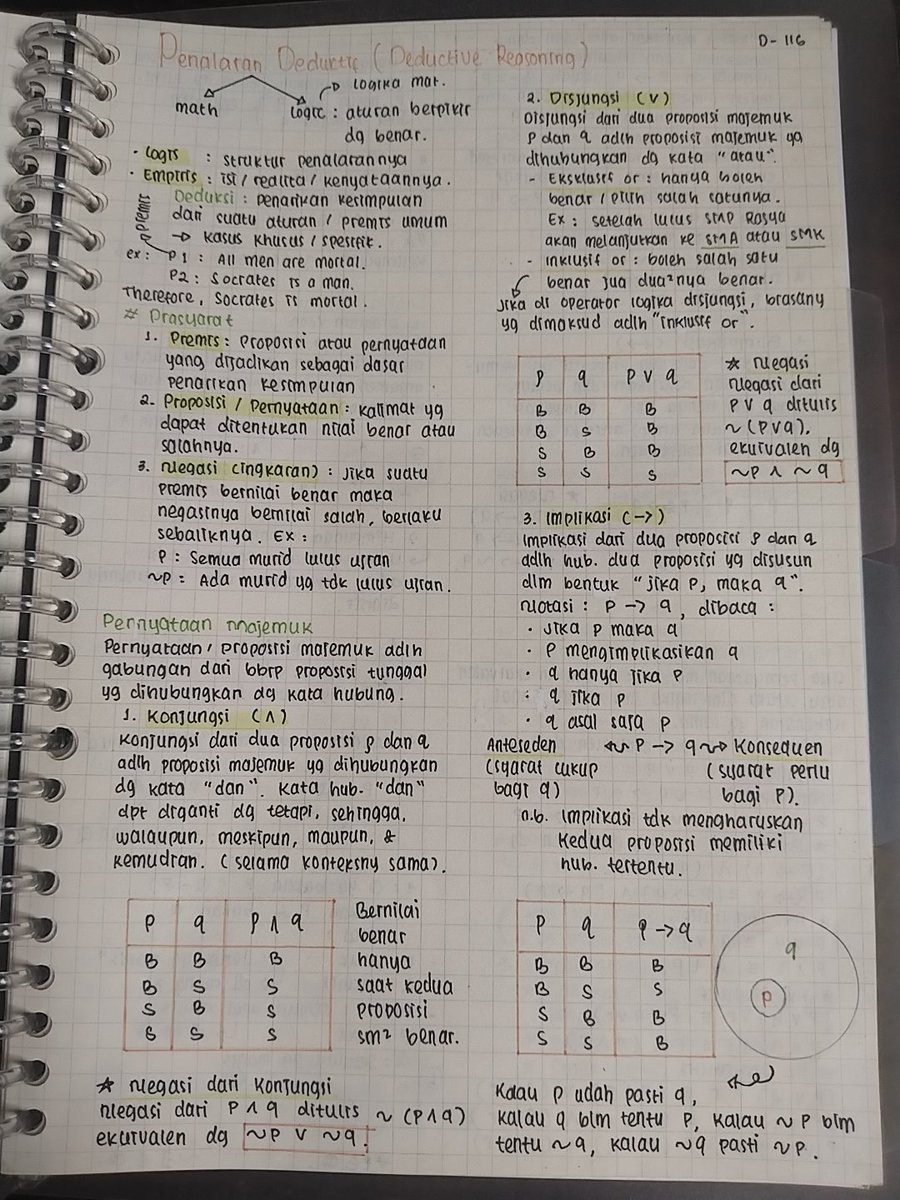 D-116
Penalaran Deductif (Deductive Reasoning)
→ logika mat.
math
logic : aturan berpikir
dg benar.
• Logis : struktur penalarannya
• Empiris : isi / realita / kenyataannya.
Deduksi : penarikan kesimpulan
dari suatu aturan / premis umum
→ kasus khusus / spesifik.
premis
ex : P1 : All men are mortal.
P2 : Socrates is a man.
Therefore, Socrates is mortal.
# Prasyarat
1. Premis : Proposisi atau pernyataan
yang dijadikan sebagai dasar
penarikan kesimpulan
2. Proposisi / Pernyataan : kalimat yg
dapat ditentukan nilai benar atau
salahnya.
3. Negasi (ingkaran) : Jika suatu
premis bernilai benar maka
negasinya bernilai salah, berlaku
sebaliknya. Ex :
P : Semua murid lulus ujian
~P : Ada murid yg tdk lulus ujian.
Pernyataan Majemuk
Pernyataan / proposisi majemuk adlh
gabungan dari bbrp proposisi tunggal
yg dihubungkan dg kata hubung.
1. Konjungsi (∧)
Konjungsi dari dua proposisi p dan q
adlh proposisi majemuk yg dihubungkan
dg kata "dan". Kata hub. "dan"
dpt diganti dg tetapi, sehingga,
walaupun, meskipun, maupun, &
kemudian. (selama konteksny sama).
P q P ∧ q
B B B
B S S
S B S
S S S
Bernilai
benar
hanya
saat kedua
proposisi
sm² benar.
★ Negasi dari Konjungsi
Negasi dari P ∧ q ditulis ~ (P ∧ q)
ekuivalen dg ~P ∨ ~q.
2. Disjungsi (∨)
Disjungsi dari dua proposisi majemuk
P dan q adlh proposisi majemuk yg
dihubungkan dg kata "atau".
- Eksklusif or : hanya boleh
benar / pilih salah satunya.
Ex : setelah lulus SMP Rasya
akan melanjutkan ke SMA atau SMK
- inklusif or : boleh salah satu
benar jua dua²nya benar.
Jika di operator logika disjungsi, biasany
yg dimaksud adlh "inklusif or".
P q P ∨ q
B B B
B S B
S B B
S S S
★ Negasi
Negasi dari
P ∨ q ditulis
~ (P ∨ q).
ekuivalen dg
~P ∧ ~q
3. Implikasi (→)
Implikasi dari dua proposisi p dan q
adlh hub. dua proposisi yg disusun
dlm bentuk "jika P, maka q".
Notasi : P → q, dibaca :
• Jika P maka q
• P mengimplikasikan q
• q hanya jika P
• q jika P
• q asal saja P
Anteseden ↜ P → q ↝ Konsequen
(syarat cukup
bagi q)
(syarat perlu
bagi P).
n.b. Implikasi tdk mengharuskan
kedua proposisi memiliki
hub. tertentu.
P q P → q
B B B
B S S
S B B
S S B
q
P
Kalau P udah pasti q,
kalau q blm tentu P, kalau ~P blm
tentu ~q, kalau ~q pasti ~P.